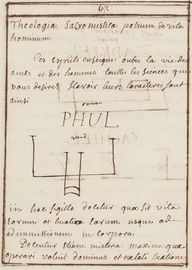 63
Theologia Sacromistita patrum, de vita
hominum
Ces esprits enseigne outre la vie des
ants et des hommes touttes les siences que
vous desirez sçavoir leurs caracteres sont
ainsi
PHUL
in hoc sigillo docetur quæ sit vita
tarum et usque ad
admissionem in corpora
Docentur etiam misteria maxima quæ
operari voluit dominus et